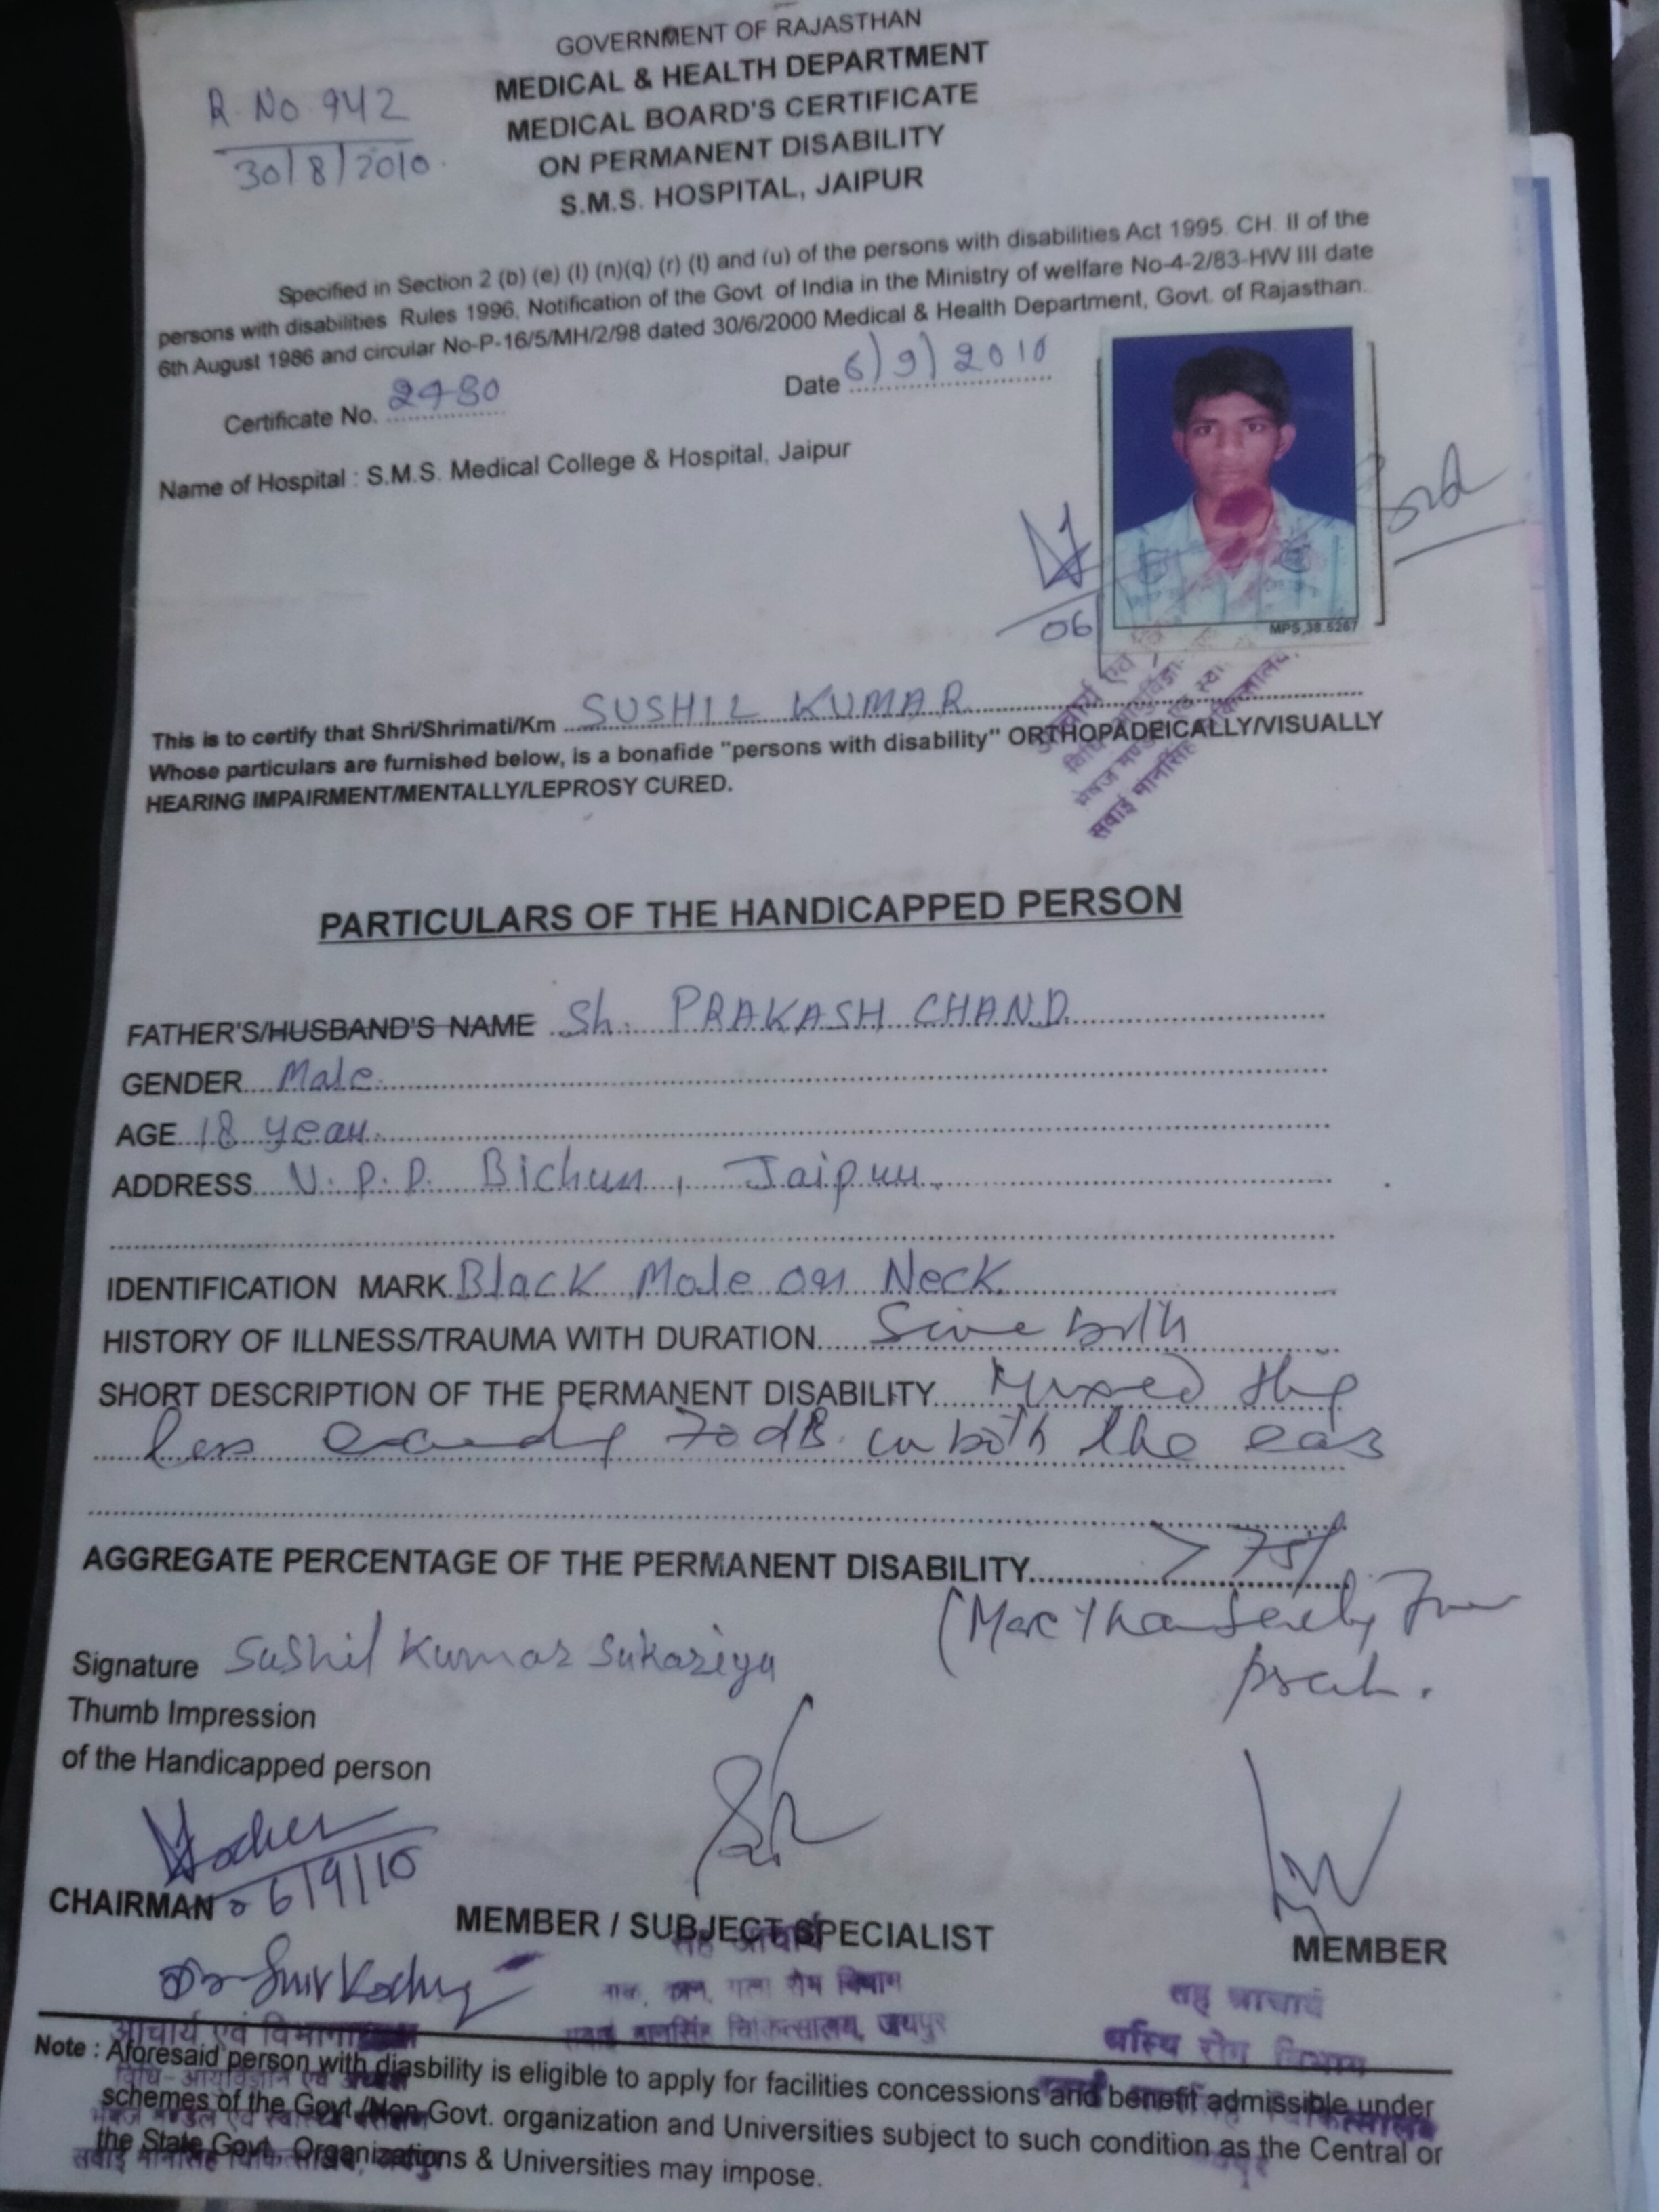 GOVERNMENT OF RAJASTHAN
MEDICAL & HEALTH DEPARTMENT
MEDICAL BOARD'S CERTIFICATE
ON PERMANENT DISABILITY
S.M.S. HOSPITAL, JAIPUR
R. No. 942
30/8/2010.
Specified in Section 2 (b) (e) (l) (n)(q) (r) (t) and (u) of the persons with disabilities Act 1995. CH. II of the
persons with disabilities Rules 1996, Notification of the Govt. of India in the Ministry of welfare No-4-2/83-HW III date
6th August 1986 and circular No-P-16/5/MH/2/98 dated 30/6/2000 Medical & Health Department, Govt. of Rajasthan.
Certificate No. 2480 Date 6/9/2010
Name of Hospital : S.M.S. Medical College & Hospital, Jaipur
06
MPS,38.5267
This is to certify that Shri/Shrimati/Km SUSHIL KUMAR
Whose particulars are furnished below, is a bonafide "persons with disability" ORTHOPADEICALLY/VISUALLY
HEARING IMPAIRMENT/MENTALLY/LEPROSY CURED.
सवाई मानसिंह चिकित्सालय
PARTICULARS OF THE HANDICAPPED PERSON
FATHER'S/HUSBAND'S NAME Sh. PRAKASH CHAND
GENDER Male
AGE 18 year
ADDRESS V. P. P. Bichun, Jaipur.
IDENTIFICATION MARK Black Mole on Neck
HISTORY OF ILLNESS/TRAUMA WITH DURATION Since birth
SHORT DESCRIPTION OF THE PERMANENT DISABILITY Mixed Hg
loss exceeding 70 dB in both the ears
AGGREGATE PERCENTAGE OF THE PERMANENT DISABILITY > 75%
(More than Seventy Five
Signature Sushil Kumar Sukariya
Thumb Impression
of the Handicapped person
06/9/10
CHAIRMAN MEMBER / SUBJECT SPECIALIST MEMBER
सह आचार्य
नाक, कान, गला रोग विभाग
सवाई मानसिंह चिकित्सालय, जयपुर
सह आचार्य
अस्थि रोग विभाग
आचार्य एवं
Note : Aforesaid person with diasbility is eligible to apply for facilities concessions and benefit admissible under
schemes of the Govt./Non Govt. organization and Universities subject to such condition as the Central or
the State Govt. Organizations & Universities may impose.